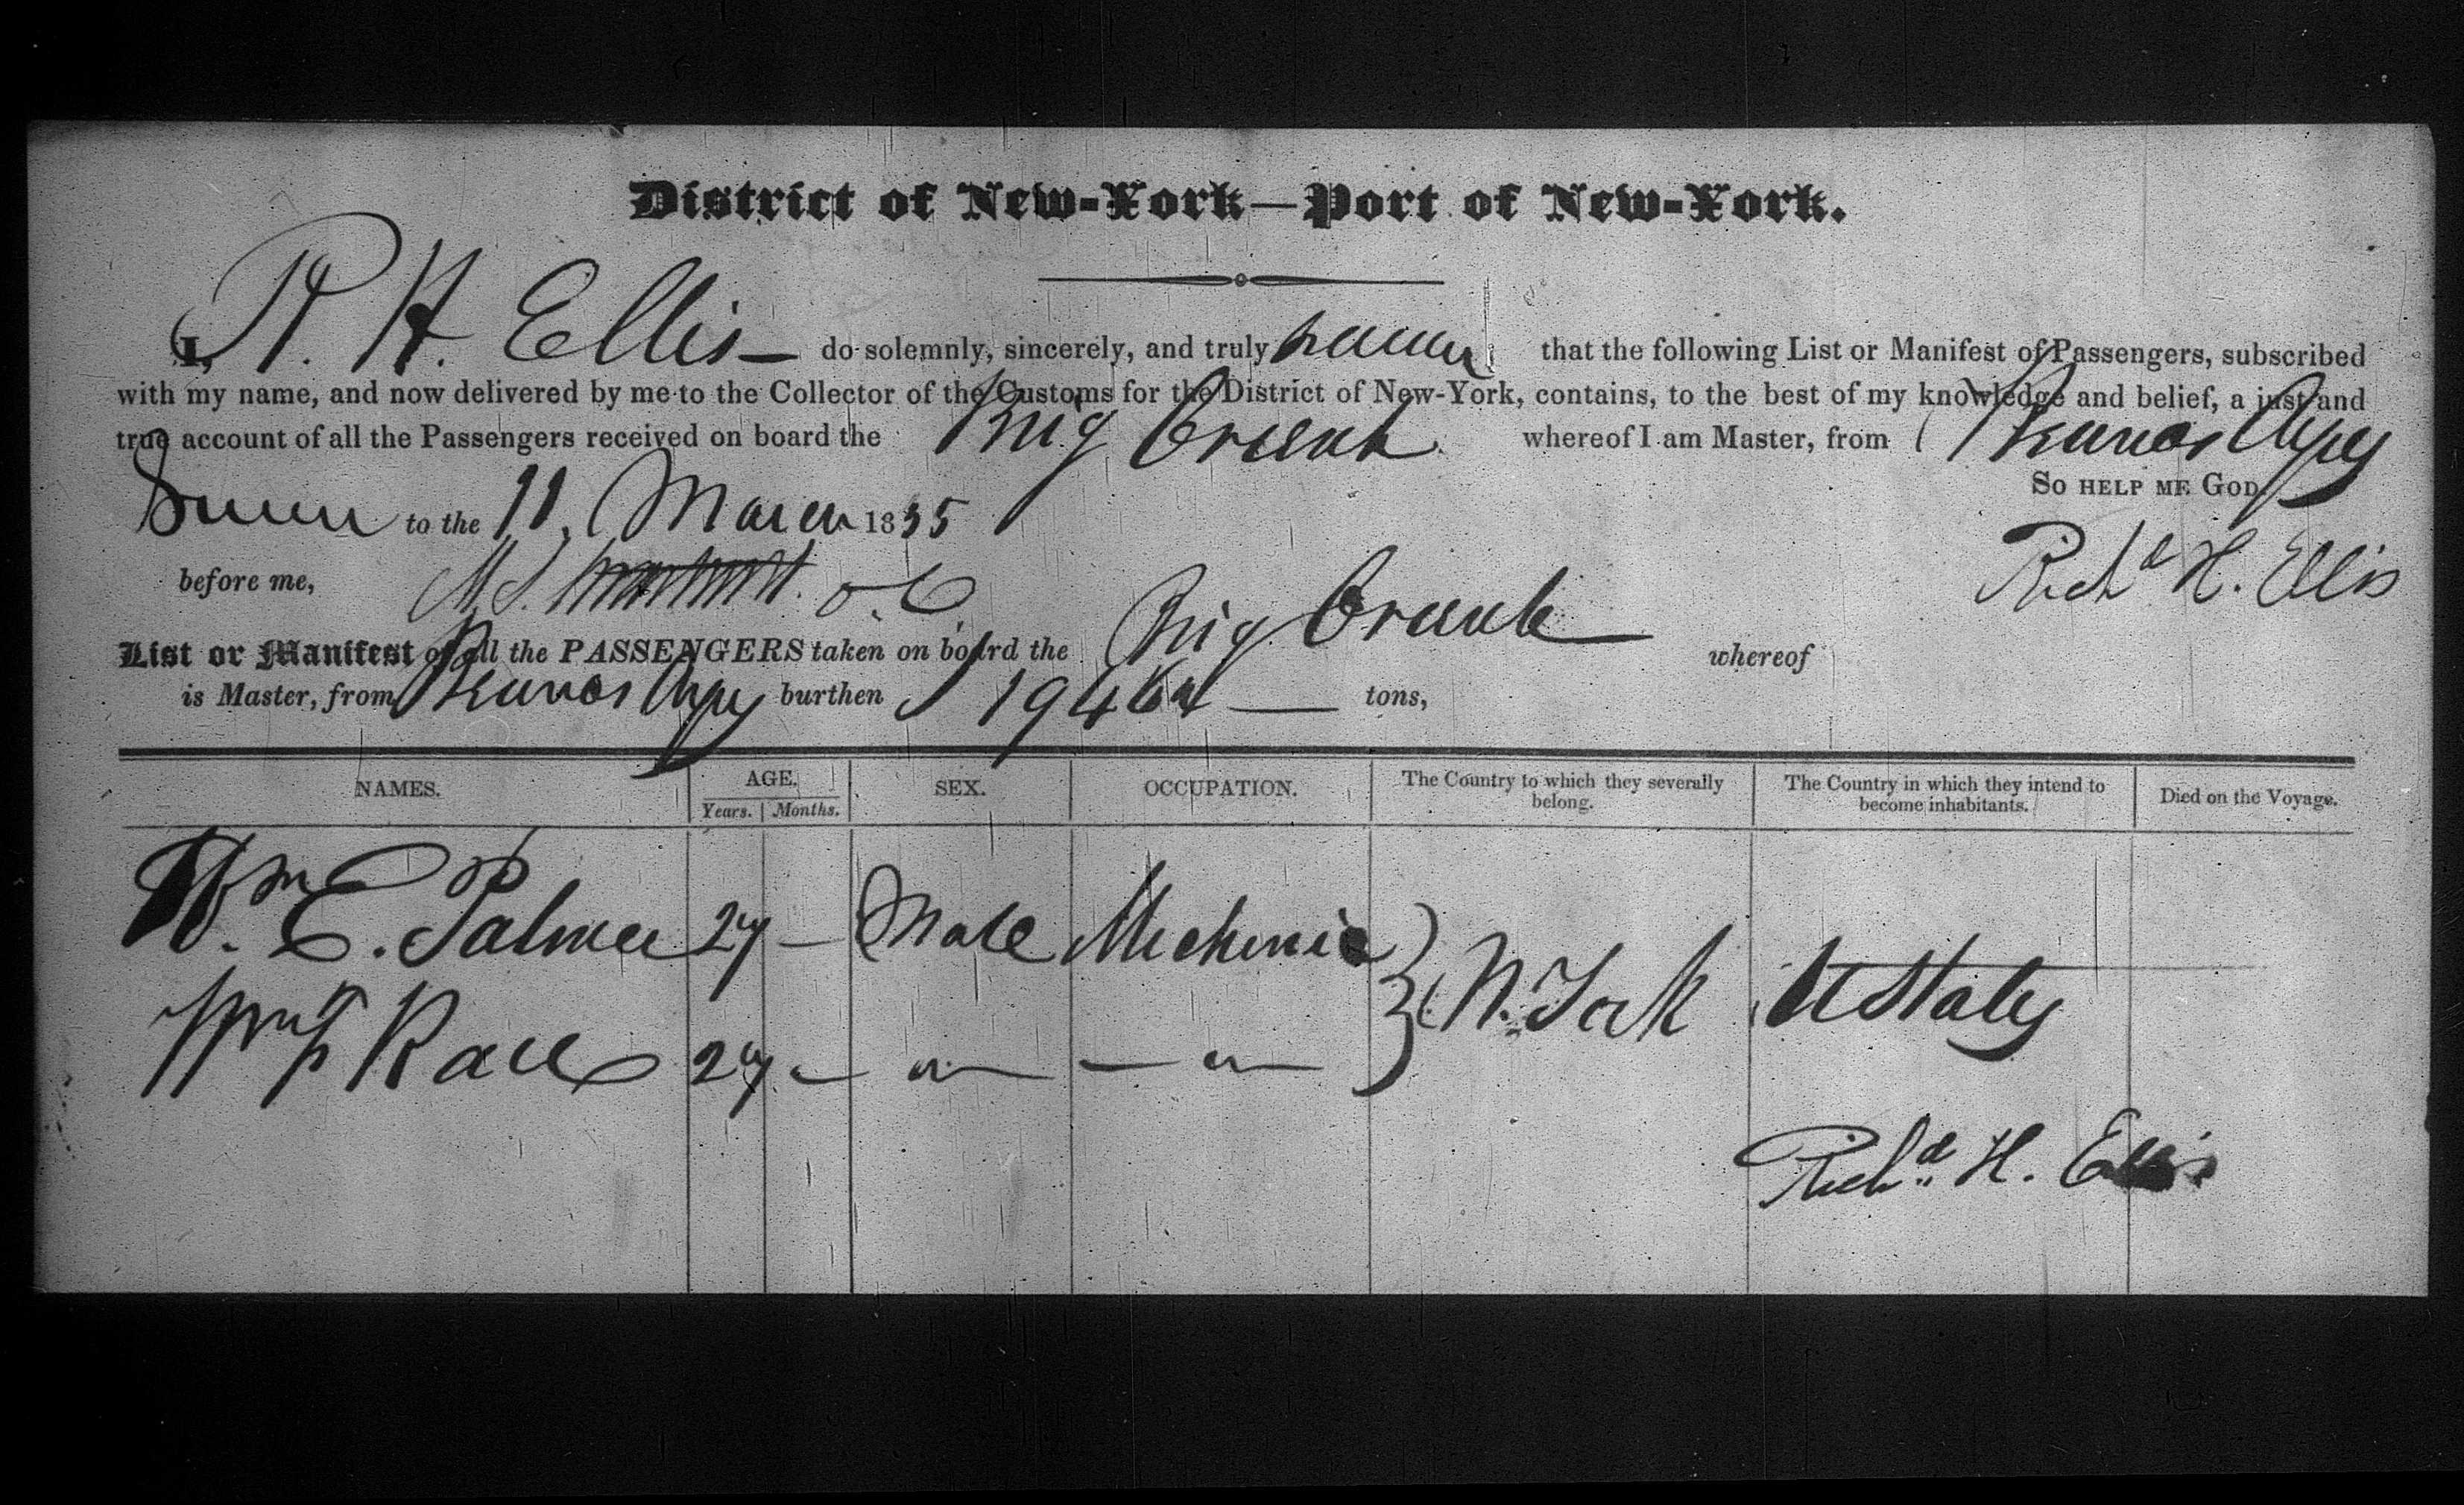 District of New-York—Port of New-York.
I, R. H. Ellis do solemnly, sincerely, and truly swear that the following List or Manifest of Passengers, subscribed
with my name, and now delivered by me to the Collector of the Customs for the District of New-York, contains, to the best of my knowledge and belief, a just and
true account of all the Passengers received on board the Brig Orient whereof I am Master, from Buenos Ayres
So help me God.
Sworn to the 11 March 1835
Richd H. Ellis
before me,
List or Manifest of all the PASSENGERS taken on board the Brig whereof
is Master, from Buenos Ayres burthen 194 tons,
NAMES. AGE. SEX. OCCUPATION. The Country to which they severally belong. The Country in which they intend to become inhabitants. Died on the Voyage.
Years. Months.
Wm E. Palmer 27 — Male Mechanic
N. York U States
Wm 27
Richd H. Ellis